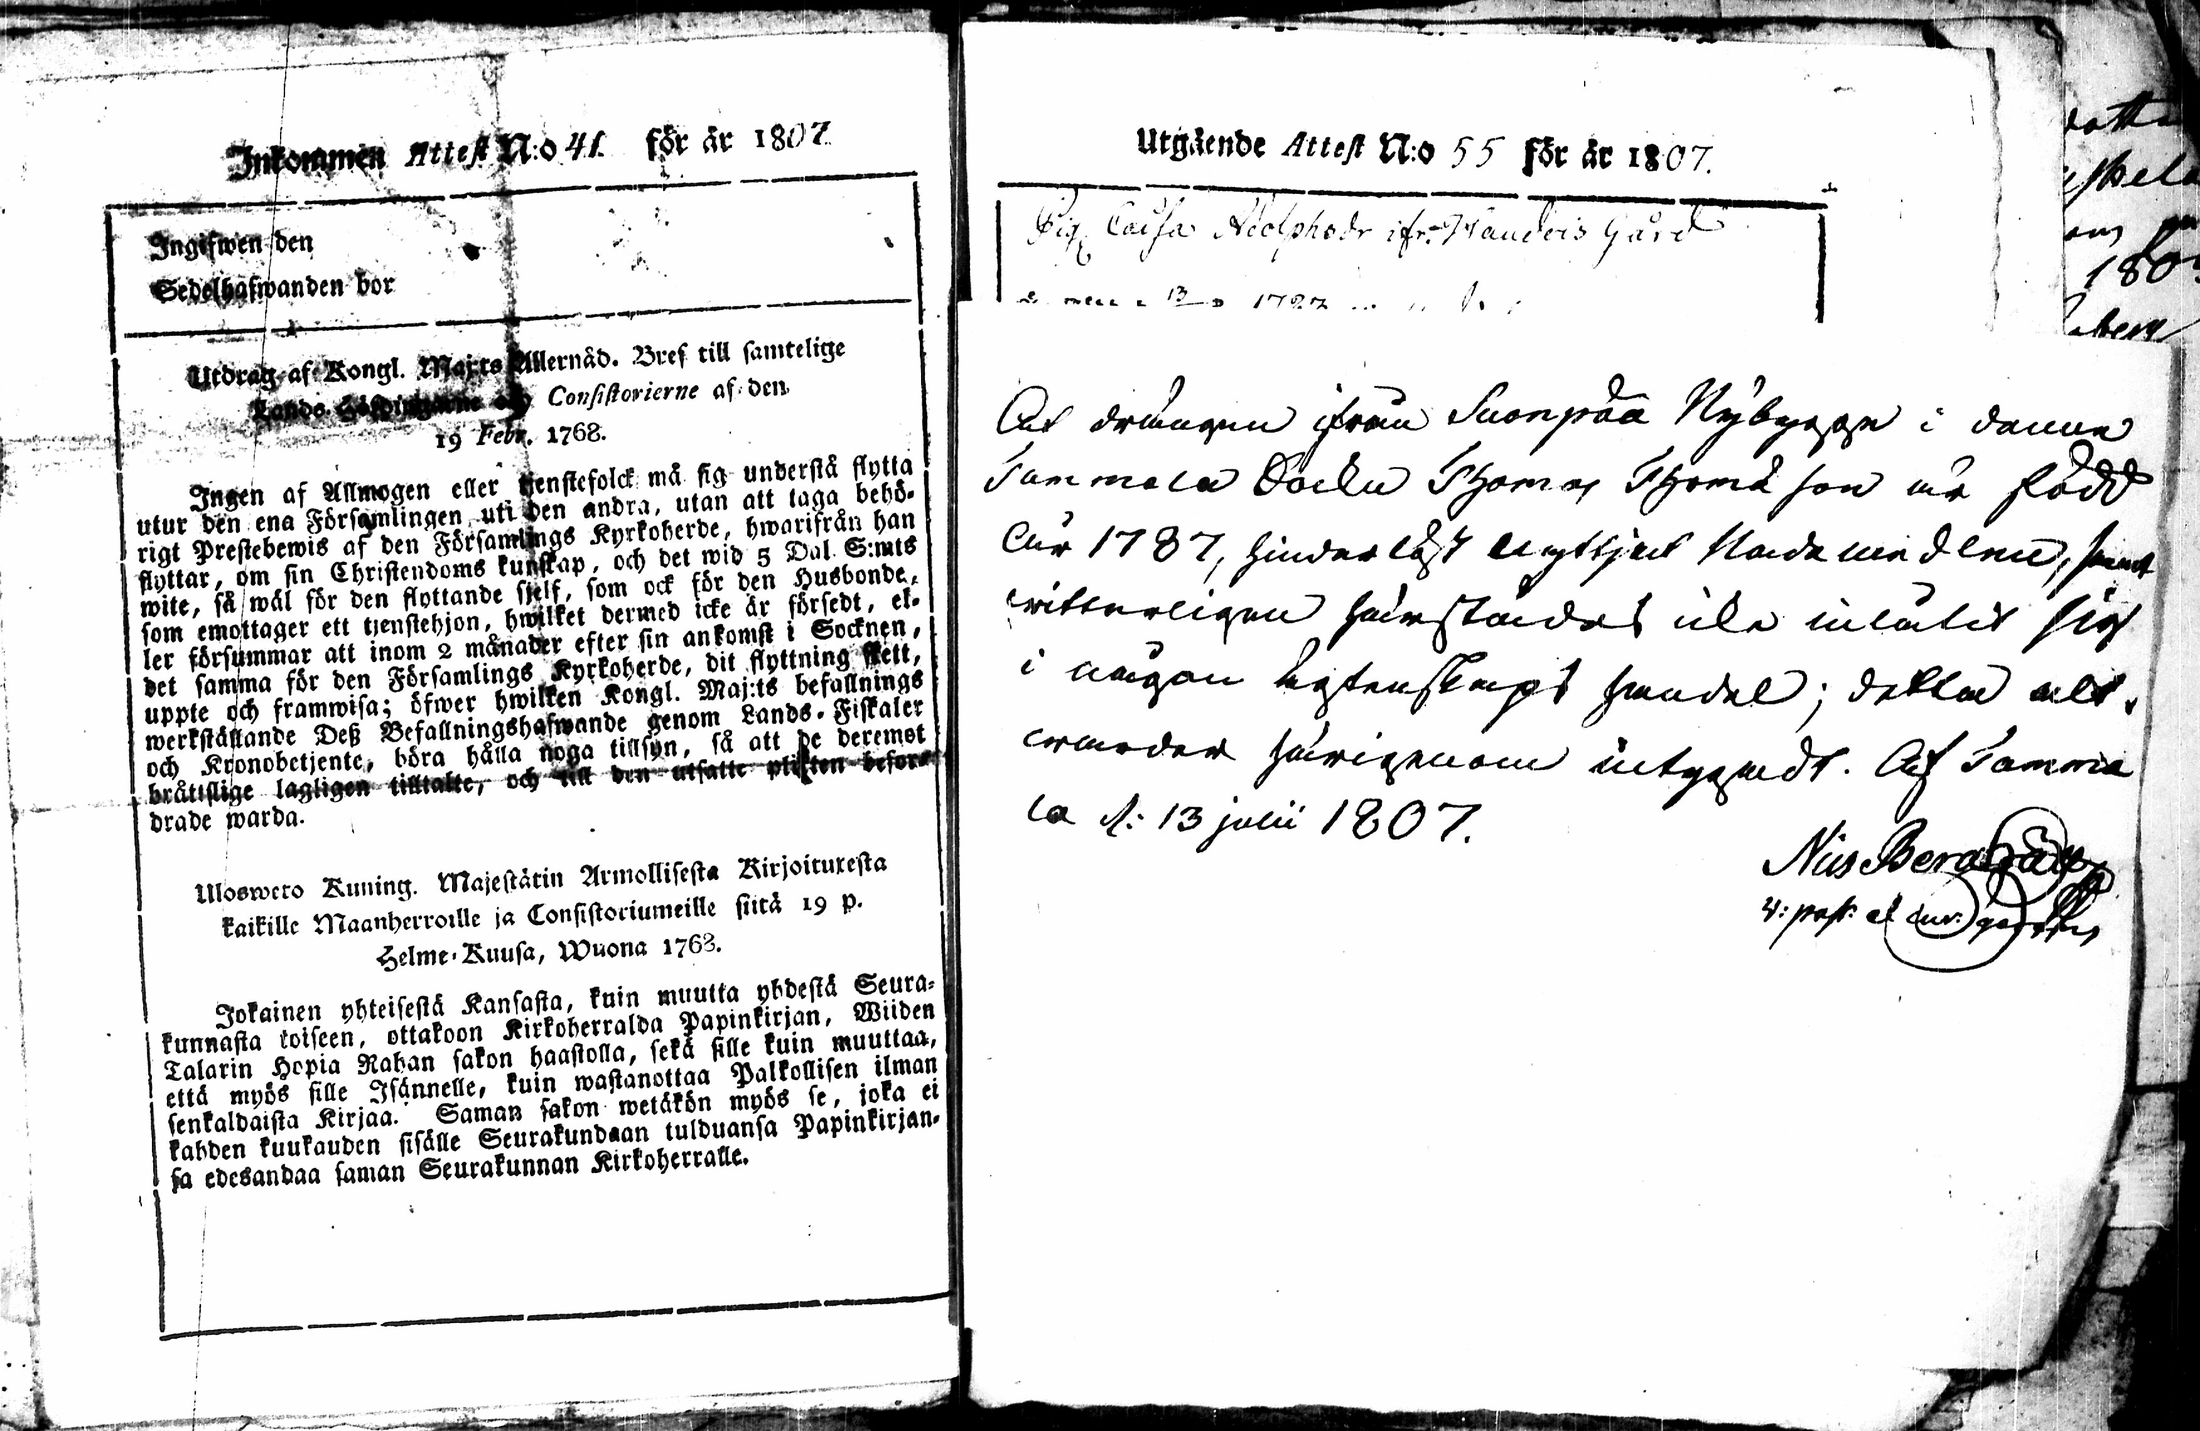 Inkommen Attest N:o 41. för år 1807
Ingifwen den
Sedelhafwanden bor
Utdrag af Kongl. Maj:ts Allernåd. Bref till samtelige
Lands-Höfdingarne och Consistorierne af den
19 Febr. 1768.
Ingen af Allmogen eller tjenstefolck må sig understå flytta
utur den ena Församlingen uti den andra, utan att taga behö-
rigt Prestebewis af den Församlings Kyrkoherde, hwarifrån han
flyttar, om sin Christendoms kunskap, och det wid 5 Dal. S:mts
wite, så wäl för den flyttande sjelf, som ock för den Husbonde,
som emottager ett tjenstehjon, hwilket dermed icke är försedt, el-
ler försummar att inom 2 månader efter sin ankomst i Socknen,
det samma för den Församlings Kyrkoherde, dit flyttning skett,
uppte och framwisa; öfwer hwilken Kongl. Maj:ts befallnings
werkställande Deß Befallningshafwande genom Lands-Fiskaler
och Kronobetjente, böra hålla noga tillsyn, så att de deremot
bråttslige lagligen tilltalte, och till den utsatte plikten befor-
drade warda.
Uloswето Kuning. Majestätin Armollisesta Kirjoituxesta
kaikille Maanherroille ja Consistoriumeille siitä 19 p.
Helme-Kuusa, Wuona 1768.
Jokainen yhteisestä Kansasta, kuin muutta yhdestä Seura-
kunnasta toiseen, ottakoon Kirkoherralda Papinkirjan, Wiiden
Talarin Hopia Rahan sakon haastolla, sekä sille kuin muuttaa,
että myös sille Isännelle, kuin wastanottaa Palkollisen ilman
senkaldaista Kirjaa. Saman sakon wetäkön myös se, joka ei
kahden kuukauden sisälle Seurakundaan tulduansa Papinkirjan-
sa edesandaa saman Seurakunnan Kirkoherralle.
Utgående Attest N:o 55 för år 1807.
Pig Caisa Adolphsdr ifr Gård
13 1787
At drängen ifrån Suonpää Nybygge i denne
Tammela Sockn Thomas Thomæson är född
Åhr 1787, hinderlöst nyttjat Nademedlen, samt
witterligen härstädes icke inlåtit sig
i någon Ägtenskaps handel; detta alt
warder härigenom intygadt. Af Tamme
la d: 13 julii 1807.
Nils
v: past: et
1807